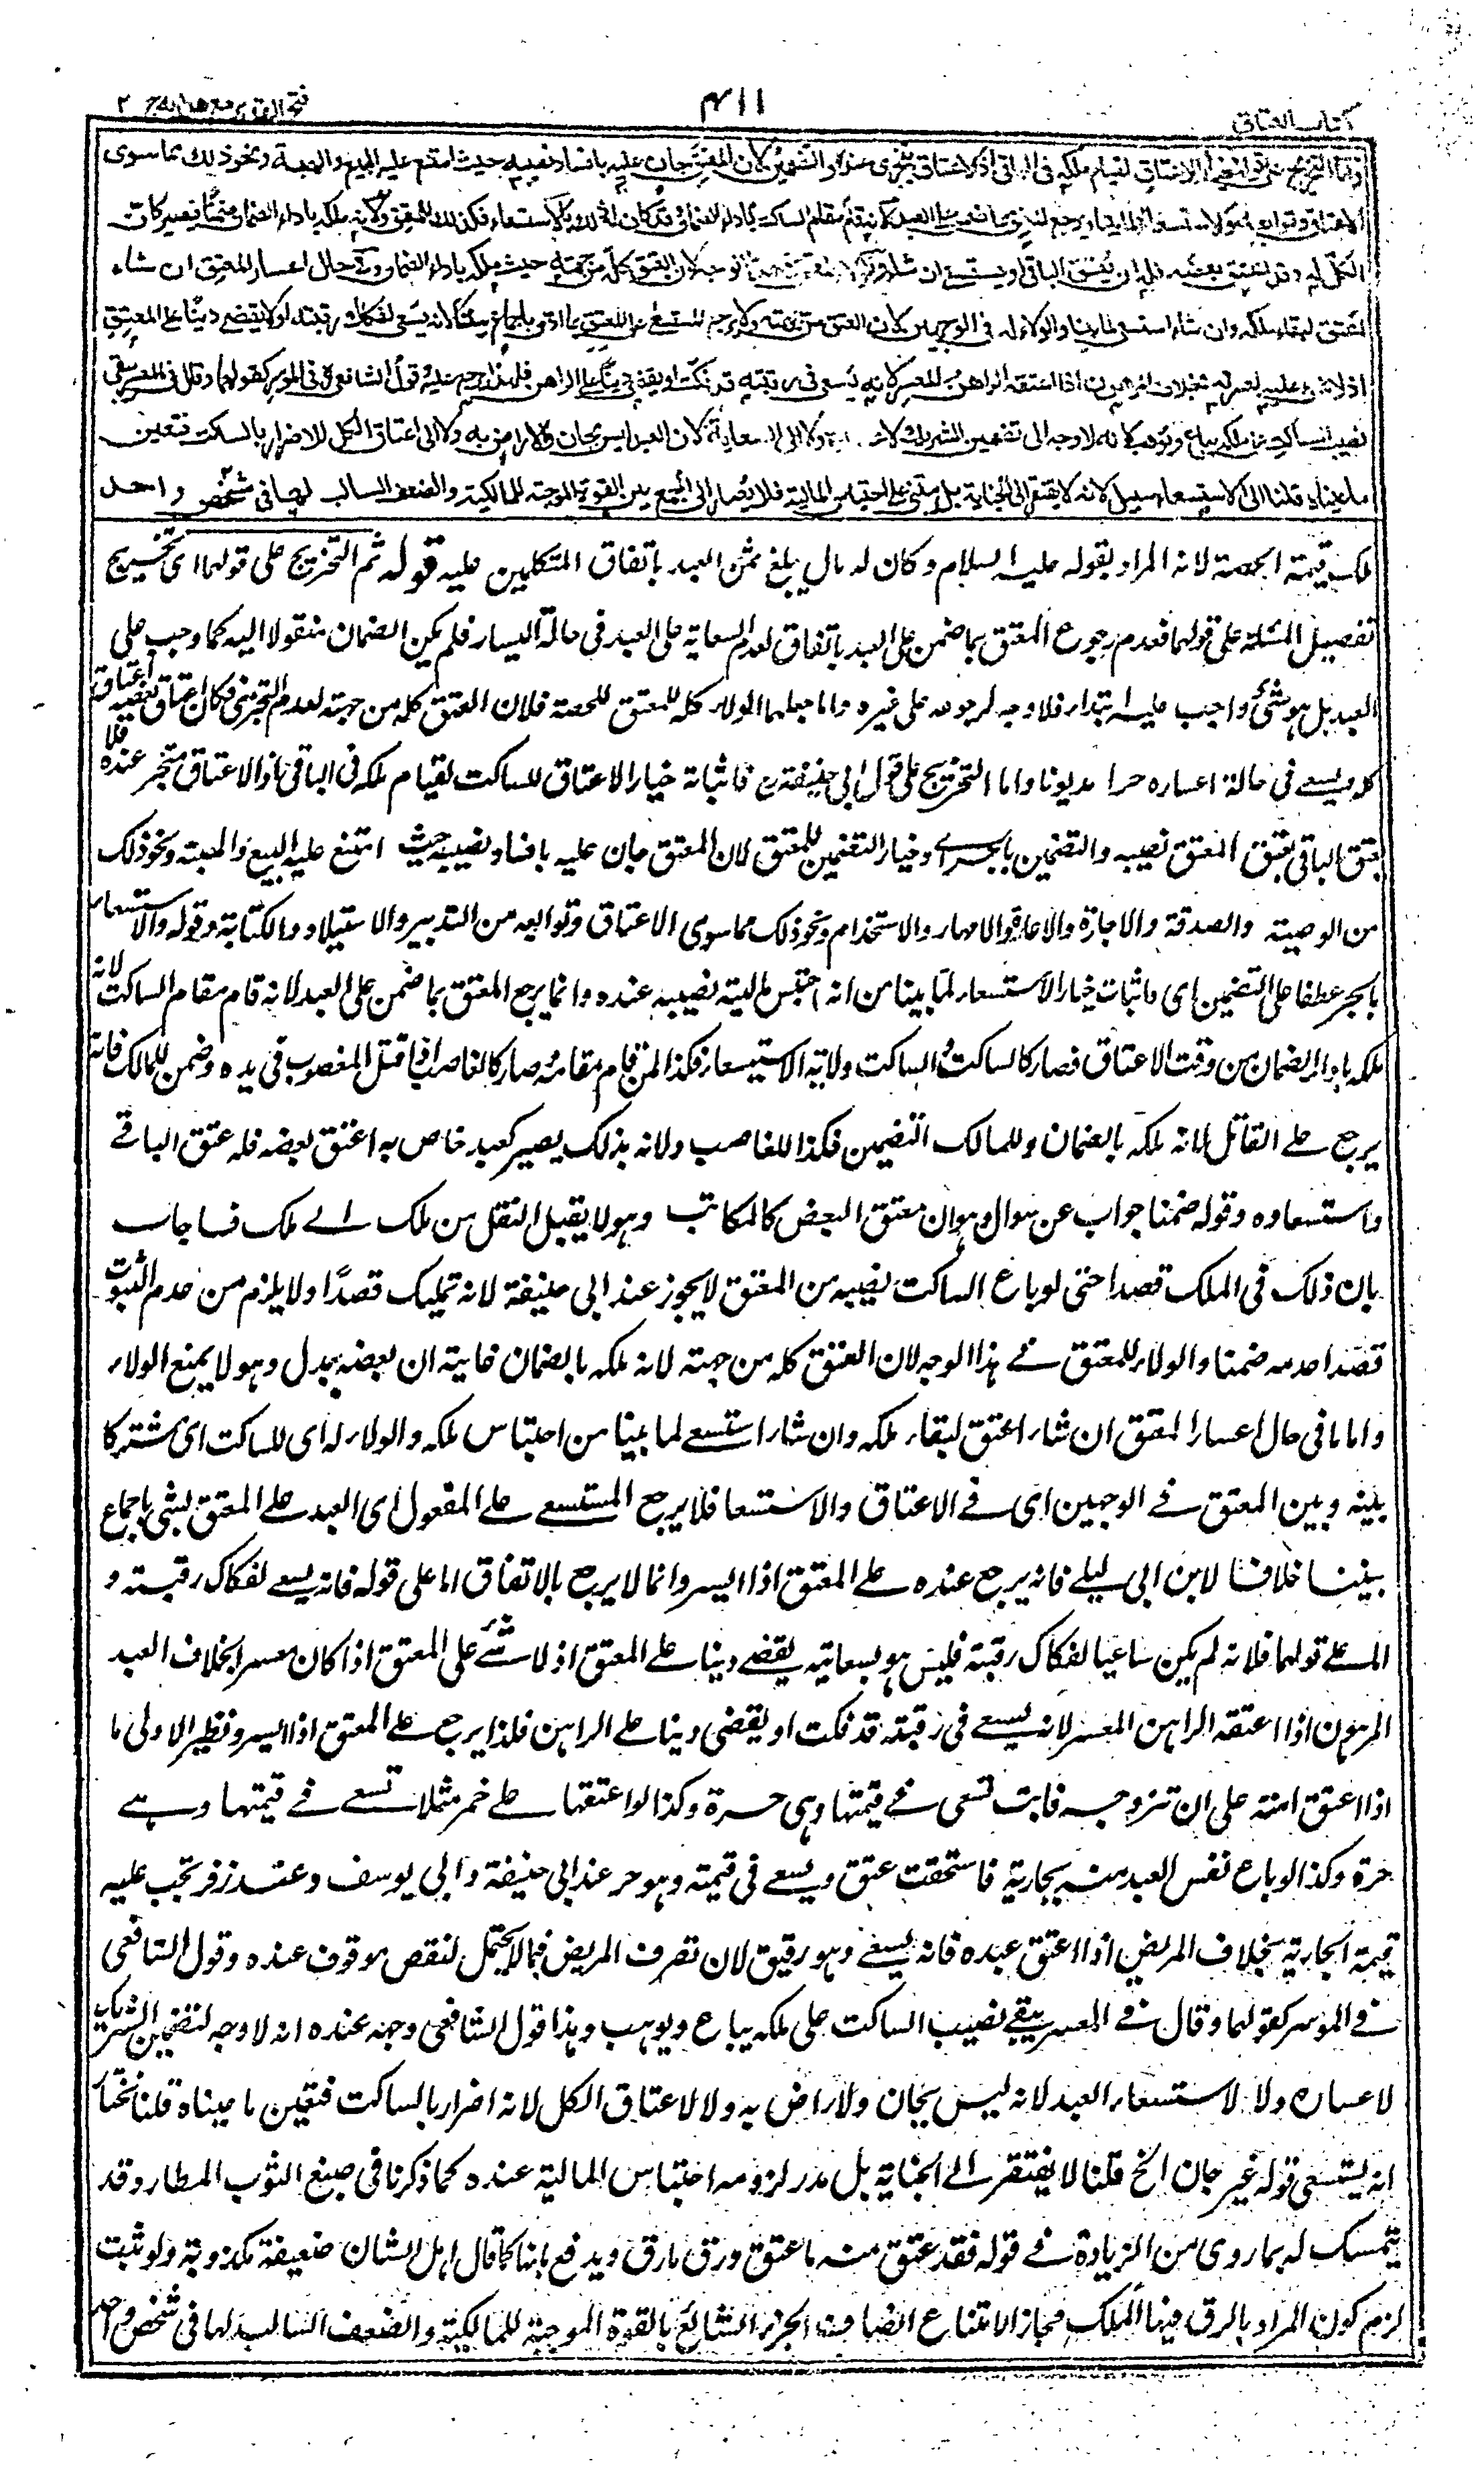 كتاب العتاق
٤١١
فتح القدير مع هداية ج ٢
الاعتاق لقيام ملكه فى الباقى اذ الاعتاق يتجزى عنده والتضمين لان المعتق جان عليه بافساد نصيبه حيث امتنع عليه البيع والهبة ونحو ذلك مما سوى
الاعتاق وتوابعه والاستسعاء لما بينا ويرجع المعتق بما ضمن على العبد لانه قام مقام الساكت باداء الضمان وقد كان له ذلك بالاستسعاء فكذلك للمعتق ولانه ملكه باداء الضمان ضمنا فيصير كان
الكل له وقد اعتق بعضه فله ان يعتق الباقى او يستسعى ان شاء والولاء للمعتق فى هذا الوجه لان العتق كله من جهته حيث ملكه باداء الضمان وفى حال اعسار المعتق ان شاء
اعتق لبقاء ملكه وان شاء استسعى لما بينا والولاء له فى الوجهين لان العتق من جهته ولا يرجع المستسعى على المعتق بما ادى باجماع بيننا لانه يسعى لفكاك رقبته او لا يقضى دينا على المعتق
اذ لا شئ عليه لعسرته بخلاف المرهون اذا اعتقه الراهن المعسر لانه يسعى فى رقبته قد فكت او يقضى دينا على الراهن فلهذا يرجع عليه وقول الشافعى فى الموسر كقولهما وقال فى المعسر يبقى
نصيب الساكت على ملكه يباع ويوهب لانه لا وجه الى تضمين الشريك لاعساره ولا الى السعاية لان العبد ليس بجان ولا راض به ولا الى اعتاق الكل للاضرار بالساكت فتعين
ما عيناه قلنا الى الاستسعاء سبيل لانه لا يفتقر الى الجناية بل يبتنى على احتباس المالية فلا يصار الى الجمع بين القوة الموجبة للمالكية والضعف السالب لها فى شخص واحد
ملك قيمة الحصة لانه المراد بقوله عليه السلام وكان له مال يبلغ ثمن العبد باتفاق المتكلمين عليه قوله ثم التخريج على قولهما اى تخريج
تفصيل المسئلة على قولهما فعدم رجوع المعتق بما ضمن على العبد باتفاق لعدم السعاية على العبد فى حالة اليسار فلم يكن الضمان منقولا اليه كما وجب على
العبد بل هو شئ واجب عليه ابتداء فلا وجه لرجوعه على غيره واما جعلهما الولاء كله للمعتق للحصة فلان العتق كله من جهته لعدم التجزى فكان اعتاق نصيبه اعتاق
كله ويسعى فى حالة اعساره حرا مديونا واما التخريج على قول ابى حنيفة رح فاثباته خيار الاعتاق للساكت لقيام ملكه فى الباقى اذ الاعتاق متجز عنده فلا
يعتق الباقى بعتق المعتق نصيبه والتضمين بالجر اى وخيار التضمين للمعتق لان المعتق جان عليه بافساد نصيبه حيث امتنع عليه البيع والهبة ونحو ذلك
من الوصية والصدقة والاجارة والاعارة والامهار والاستخدام ونحو ذلك مما سوى الاعتاق وتوابعه من التدبير والاستيلاد والكتابة وقوله والاستسعاء
بالجر عطفا على التضمين اى واثبات خيار الاستسعاء لما بينا من انه احتبس مالية نصيبه عنده وانما يرجع المعتق بما ضمن على العبد لانه قام مقام الساكت لانه
ملكه باداء الضمان من وقت الاعتاق فصار كالساكت وللساكت ولاية الاستسعاء فكذا لمن قام مقامه وصار كالغاصب اذا قتل المغصوب فى يده وضمن للمالك فانه
يرجع على القاتل لانه ملكه بالضمان وللمالك التضمين فكذا للغاصب ولانه بذلك يصير كعبد خاص به اعتق بعضه فله عتق الباقى
واستسعاؤه وقوله ضمنا جواب عن سوال وهو ان معتق البعض كالمكاتب وهو لا يقبل النقل من ملك الى ملك فاجاب
بان ذلك فى الملك قصدا حتى لو باع الساكت نصيبه من المعتق لا يجوز عند ابى حنيفة لانه تمليك قصدًا ولا يلزم من عدم الثبوت
قصدا عدمه ضمنا والولاء للمعتق فى هذا الوجه لان العتق كله من جهته لانه ملكه بالضمان غايته ان بعضه ببدل وهو لا يمنع الولاء
واما ما فى حال اعسار المعتق ان شاء اعتق لبقاء ملكه وان شاء استسعى لما بينا من احتباس ملكه والولاء له اى للساكت اى مشتركا
بينه وبين المعتق فى الوجهين اى فى الاعتاق والاستسعا فلا يرجع المستسعى على المفعول اى العبد على المعتق بشئ باجماع
بيننا خلافا لابن ابى ليلى فانه يرجع عنده على المعتق اذا ايسر وانما لا يرجع بالاتفاق اما على قوله فانه يسعى لفكاك رقبته و
اما على قولهما فلانه لم يكن ساعيا لفكاك رقبة فليس هو بسعايته يقضى دينا على المعتق اذ لا شئ على المعتق اذا كان معسرا بخلاف العبد
المرهون اذا اعتقه الراهن المعسر لانه يسعى فى رقبته قد فكت او يقضى دينا على الراهن فلذا يرجع على المعتق اذا ايسر ونظير الاولى ما
اذا اعتق امته على ان تتزوجه فابت تسعى فى قيمتها وهى حرة وكذا لو اعتقها على خمر مثلا تسعى فى قيمتها وهى
حرة وكذا لو باع نفس العبد منه بجارية فاستحقت عتق ويسعى فى قيمته وهو حر عند ابى حنيفة وابى يوسف وعند زفر تجب عليه
قيمة الجارية بخلاف المريض اذا اعتق عبده فانه يسعى وهو رقيق لان تصرف المريض فيما لا يحتمل النقض موقوف عنده وقول الشافعى
فى الموسر كقولهما وقال فى المعسر يبقى نصيب الساكت على ملكه يباع ويوهب وهذا قول الشافعى وجهه عنده انه لا وجه لتضمين الشريك
لاعساره ولا لاستسعاء العبد لانه ليس بجان ولا راض به ولا لاعتاق الكل لانه اضرار بالساكت فتعين ما عيناه قلنا نختار
انه يستسعى قوله غير جان الخ قلنا لا يفتقر الى الجناية بل مدار لزومه احتباس المالية عنده كما ذكرنا فى صبغ الثوب المطار وقد
يتمسك له بما روى من الزيادة فى قوله فقد عتق منه ما عتق ورق ما رق ويدفع بانها كما قال اهل الشان ضعيفة مكذوبة ولو ثبت
لزم كون المراد بالرق فيها الملك مجازا لامتناع اتصاف الجزء الشائع بالقوة الموجبة للمالكية والضعف السالب لها فى شخص واحد